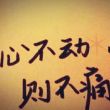 心不动
则不痛